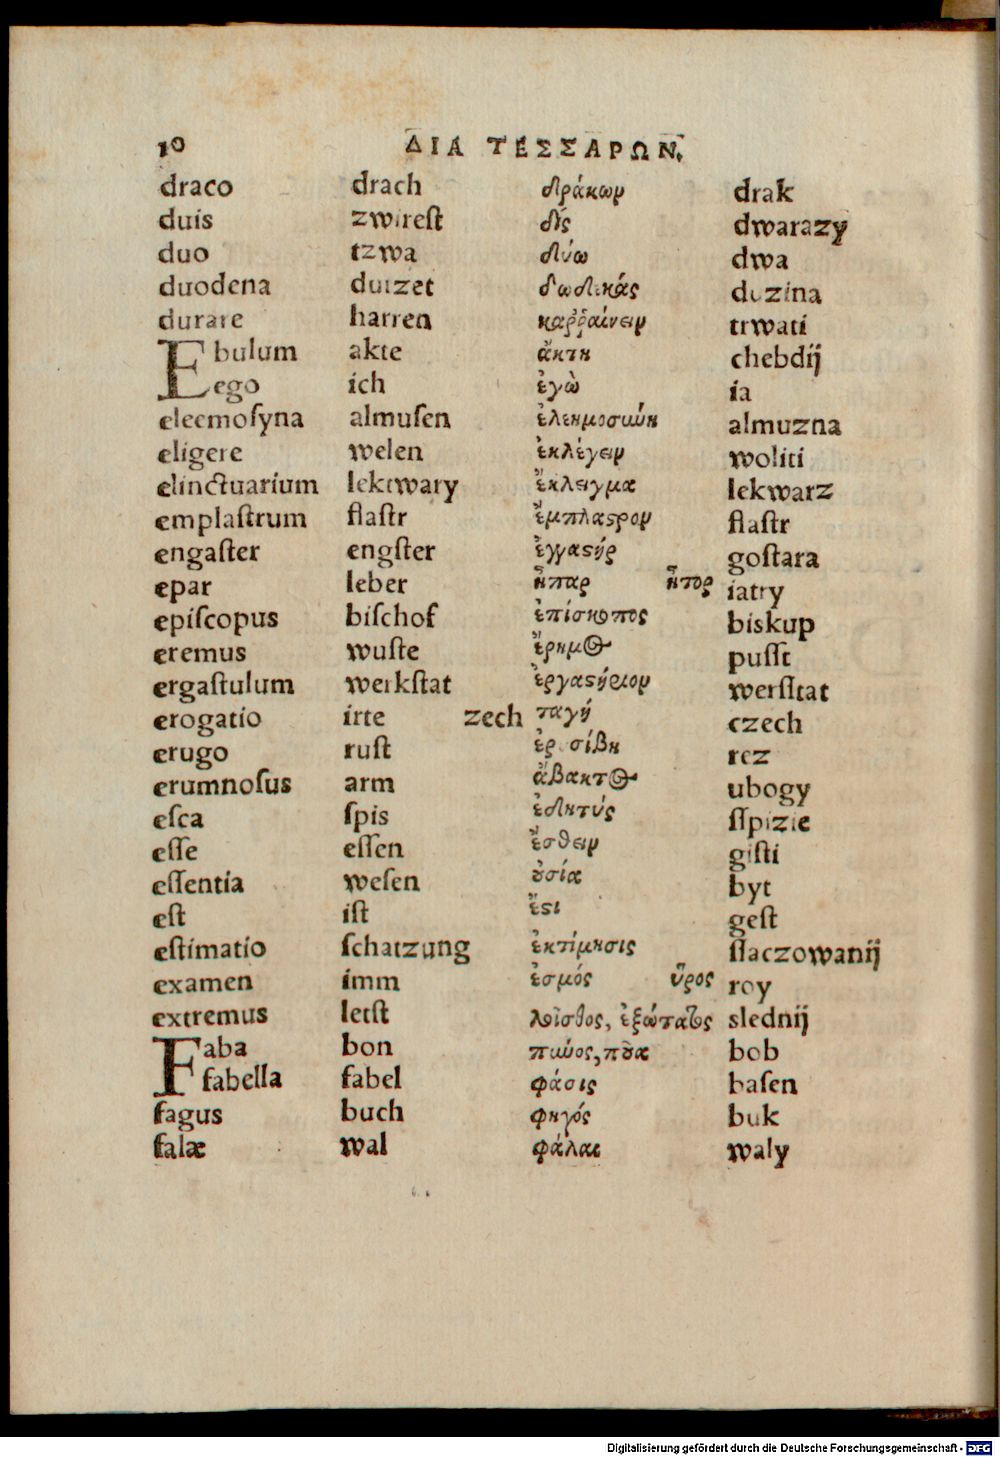 10 ΔΙΑ ΤΕΣΣΑΡΩΝ.
draco drach δράκων drak
duis zwirest δίς dwarazy
duo tzwa δύω dwa
duodena dutzet δωδεκάς duzina
durare harren καῤῥαίνειν trwati
Ebulum akte ἄκτη chebdij
ego ich ἐγὼ ia
eleemoſyna almuſen ἐλεημοσύνη almuzna
eligere welen ἐκλέγειν woliti
elinctuarium lektwary ἔκλειγμα lekwarz
emplaſtrum flaſtr ἔμπλαϛρον flaſtr
engaſter engſter ἐγγαϛήρ goſtara
epar leber ἧπαρ ἦτορ iatry
epiſcopus biſchof ἐπίσκοπος biskup
eremus wuſte ἔρημος puſſt
ergaſtulum werkſtat ἐργαϛήριον werſſtat
erogatio irte zech ταγή czech
erugo ruſt ἐρυσίβη rez
erumnoſus arm ἄβακτος ubogy
eſca ſpis ἐδητύς ſſpizie
eſſe eſſen ἔσθειν giſti
eſſentia weſen ȣσία byt
eſt iſt ἔϛι geſt
eſtimatio ſchatzung ἐκτίμησις ſſaczowanij
examen imm ἐσμός ὗρος roy
extremus letſt λοῖσθος, ἐξώτατος slednij
Faba bon πυύος, πȣα bob
fabella fabel φάσις baſen
fagus buch φηγός buk
falæ wal φάλαι waly
Digitalisierung gefördert durch die Deutsche Forschungsgemeinschaft - DFG